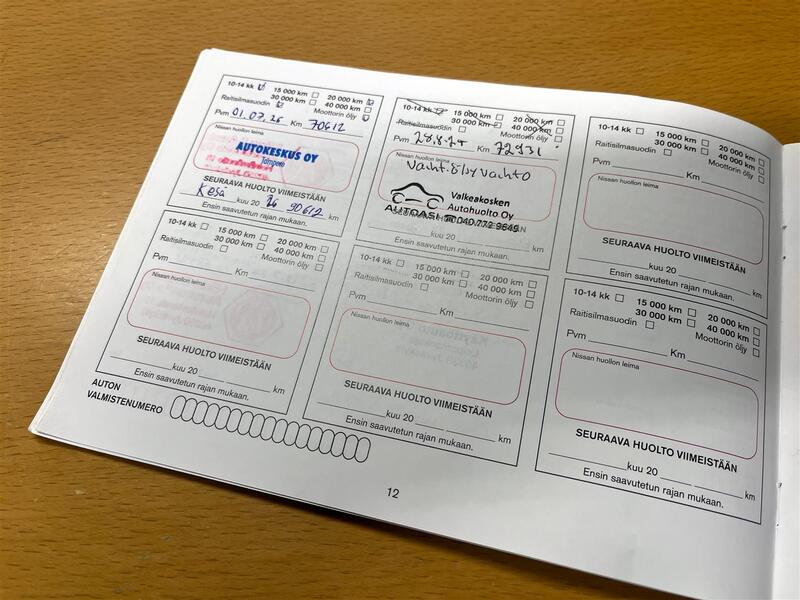 10-14 kk 15 000 km 20 000 km
30 000 km 40 000 km
Raitisilmasuodin Moottorin öljy
Pvm 01.07.25 Km 70612
Nissan huollon leima
AUTOKESKUS OY
Tampere
SEURAAVA HUOLTO VIIMEISTÄÄN
Kesä kuu 20 26 90612 km
Ensin saavutetun rajan mukaan.
10-14 kk 15 000 km 20 000 km
30 000 km 40 000 km
Raitisilmasuodin Moottorin öljy
Pvm 28.8.24 Km 72931
Nissan huollon leima
Valkeakosken
Autohuolto Oy
AUTOASI 040 772 9649
SEURAAVA HUOLTO VIIMEISTÄÄN
kuu 20 km
Ensin saavutetun rajan mukaan.
10-14 kk 15 000 km 20 000 km
30 000 km 40 000 km
Raitisilmasuodin Moottorin öljy
Pvm Km
Nissan huollon leima
SEURAAVA HUOLTO VIIMEISTÄÄN
kuu 20 km
Ensin saavutetun rajan mukaan.
10-14 kk 15 000 km 20 000 km
30 000 km 40 000 km
Raitisilmasuodin Moottorin öljy
Pvm Km
Nissan huollon leima
SEURAAVA HUOLTO VIIMEISTÄÄN
kuu 20 km
Ensin saavutetun rajan mukaan.
10-14 kk 15 000 km 20 000 km
30 000 km 40 000 km
Raitisilmasuodin Moottorin öljy
Pvm Km
Nissan huollon leima
SEURAAVA HUOLTO VIIMEISTÄÄN
kuu 20 km
Ensin saavutetun rajan mukaan.
10-14 kk 15 000 km 20 000 km
30 000 km 40 000 km
Raitisilmasuodin Moottorin öljy
Pvm Km
Nissan huollon leima
SEURAAVA HUOLTO VIIMEISTÄÄN
kuu 20 km
Ensin saavutetun rajan mukaan.
AUTON
VALMISTENUMERO
12